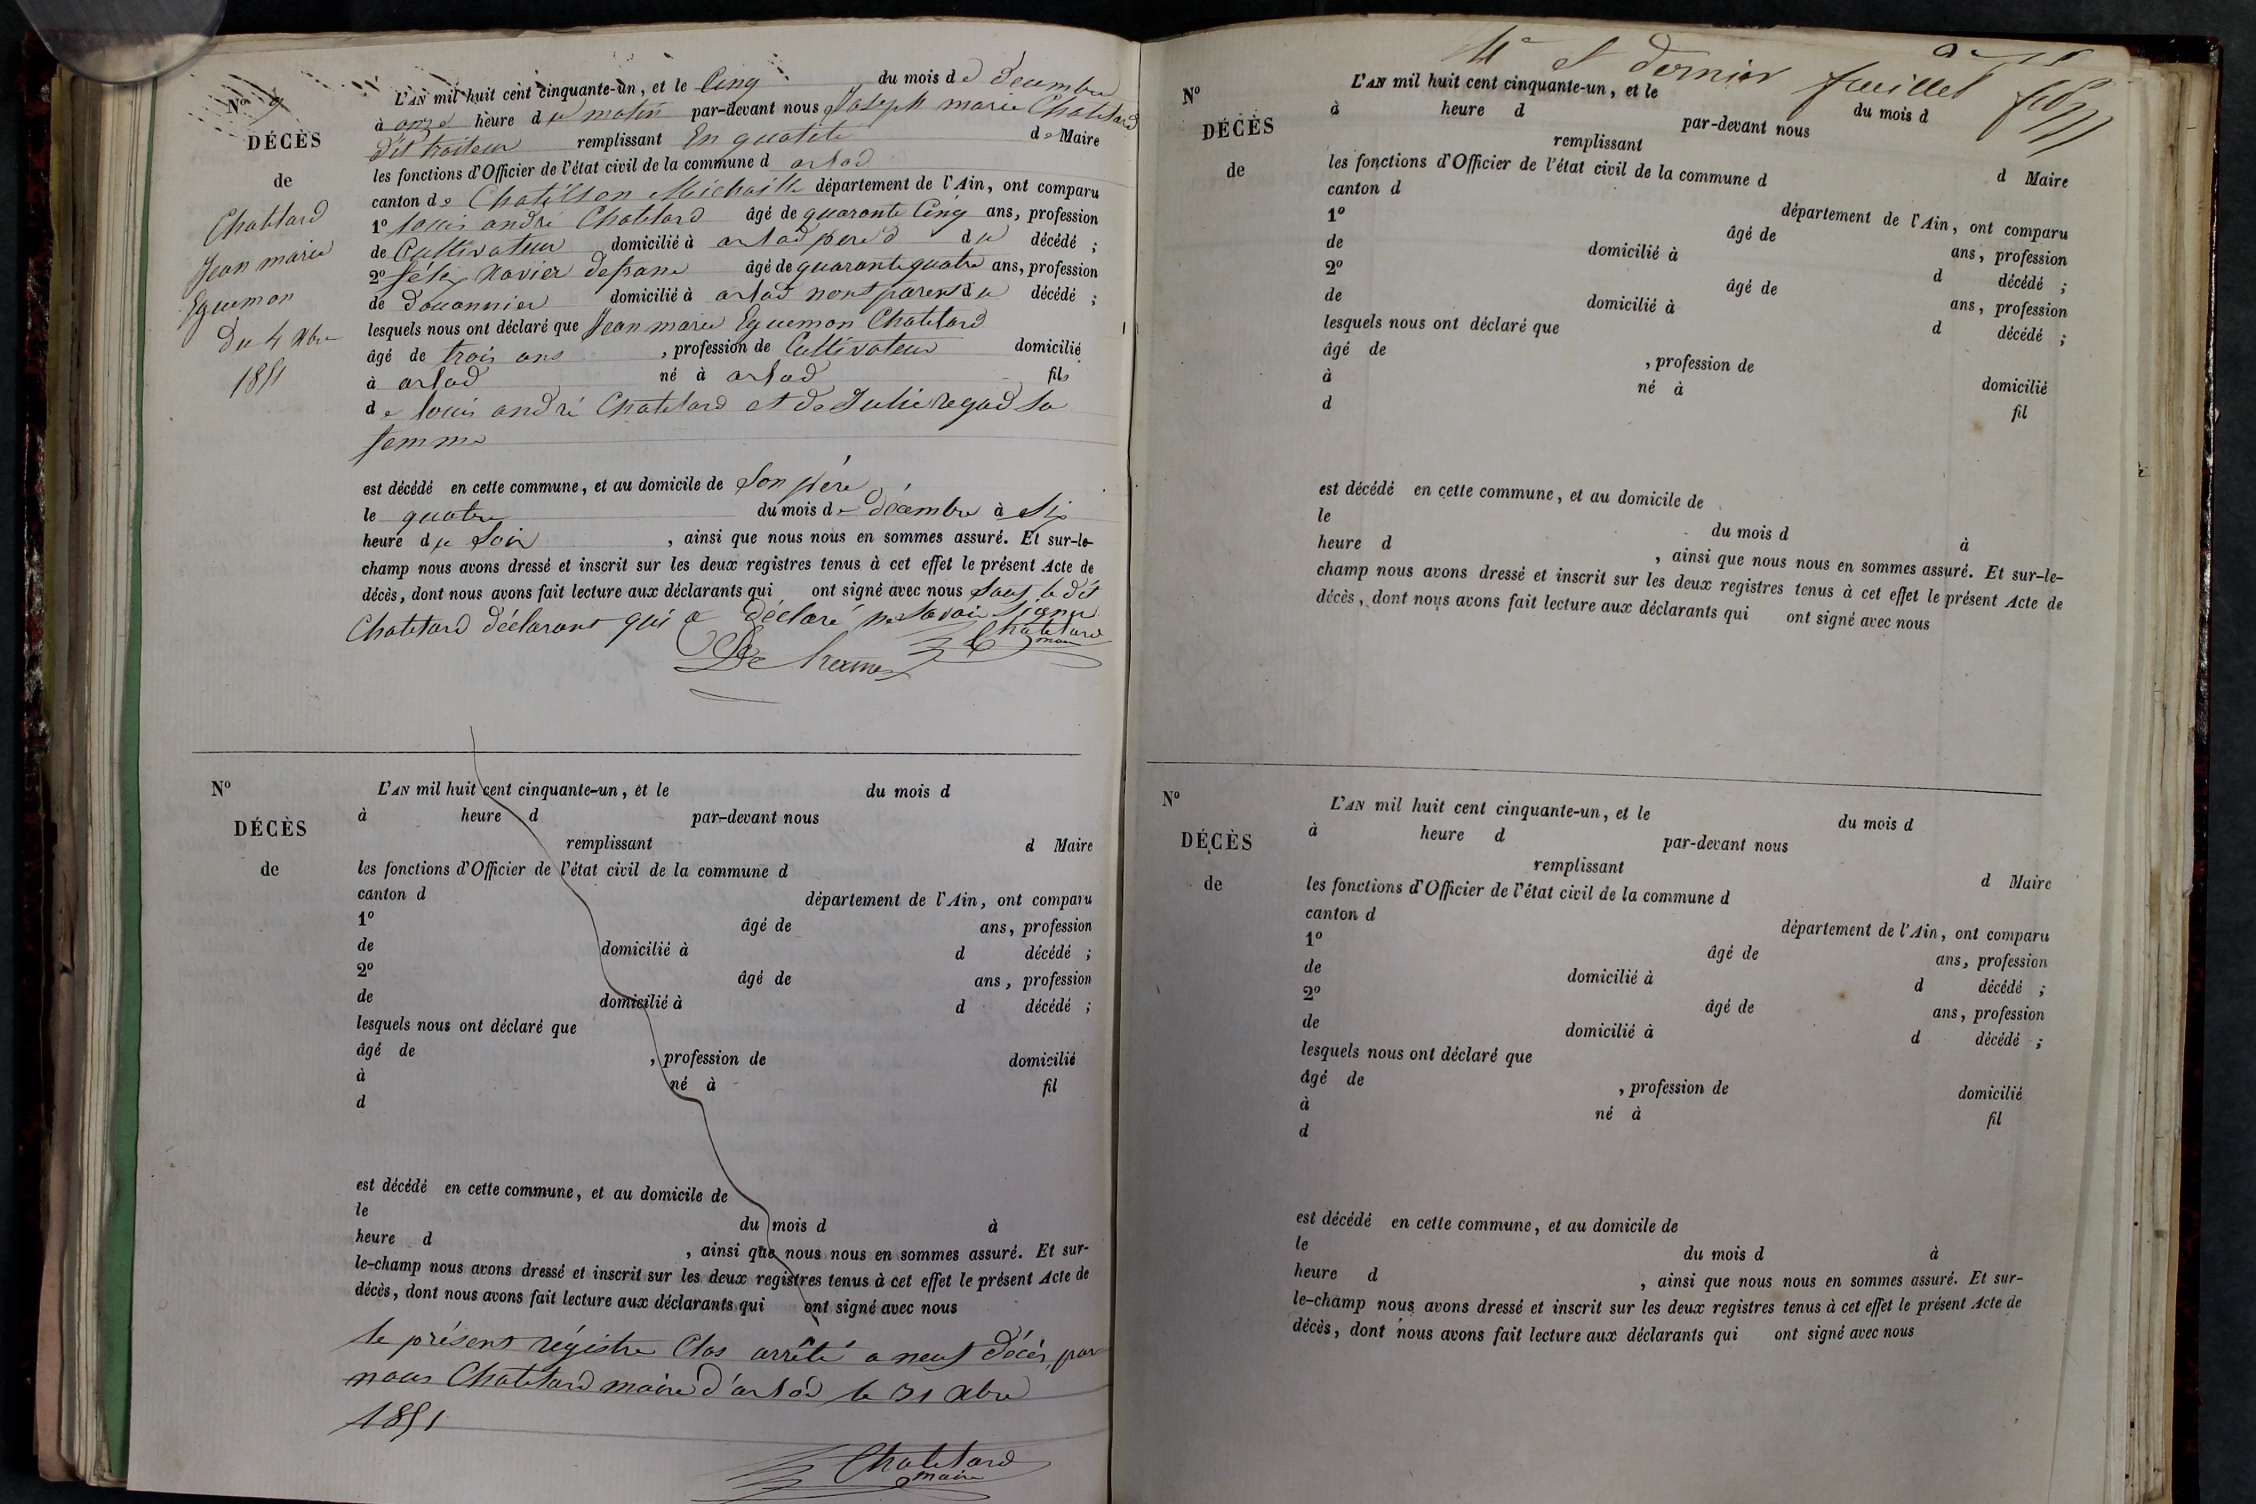 Nº 9
DÉCÈS
de
Chatelard
Jean marie
Eguemon
du 4 Xbre
1851
L'AN mil huit cent cinquante-un, et le Cinq du mois de décembre
à onze heure du matin par-devant nous Joseph marie Chatelard
dit traiteur remplissant En qualité de Maire
les fonctions d'Officier de l'état civil de la commune d arlod
canton de Chatillon Michaille département de l'Ain, ont comparu
1º Louis andré Chatelard âgé de quarante Cinq ans, profession
de Cultivateur domicilié à arlod père d du décédé ;
2º félix Xavier âgé de quarante quatre ans, profession
de douannier domicilié à arlod nont parent du décédé ;
lesquels nous ont déclaré que Jean marie Eguemon Chatelard
âgé de trois ans , profession de Cultivateur domicilié
à arlod né à arlod fils
de Louis andré Chatelard et de Julie regad sa
femme
est décédé en cette commune, et au domicile de Son père
le quatre du mois de décembre à Six
heure du Soir , ainsi que nous nous en sommes assuré. Et sur-le-
champ nous avons dressé et inscrit sur les deux registres tenus à cet effet le présent Acte de
décès, dont nous avons fait lecture aux déclarants qui ont signé avec nous Sauf le dit
Chatelard déclarant qui a déclaré ne Savoir Signer
Chatelard
maire
Nº
DÉCÈS
de
L'AN mil huit cent cinquante-un, et le du mois d
à heure d par-devant nous
remplissant d Maire
les fonctions d'Officier de l'état civil de la commune d
canton d département de l'Ain, ont comparu
1º âgé de ans, profession
de domicilié à d décédé ;
2º âgé de ans, profession
de domicilié à d décédé ;
lesquels nous ont déclaré que
âgé de , profession de domicilié
à né à fil
d
est décédé en cette commune, et au domicile de
le du mois d à
heure d , ainsi que nous nous en sommes assuré. Et sur-
le-champ nous avons dressé et inscrit sur les deux registres tenus à cet effet le présent Acte de
décès, dont nous avons fait lecture aux déclarants qui ont signé avec nous
le présent régistre Clos arrêté a neuf décès, par
nous Chatelard maire d'arlod le 31 Xbre
1851
Chatelard
maire
et dernier feuillet
Nº
DÉCÈS
de
L'AN mil huit cent cinquante-un, et le du mois d
à heure d par-devant nous
remplissant d Maire
les fonctions d'Officier de l'état civil de la commune d
canton d département de l'Ain, ont comparu
1º âgé de ans, profession
de domicilié à d décédé ;
2º âgé de ans, profession
de domicilié à d décédé ;
lesquels nous ont déclaré que
âgé de , profession de domicilié
à né à fil
d
est décédé en cette commune, et au domicile de
le du mois d à
heure d , ainsi que nous nous en sommes assuré. Et sur-le-
champ nous avons dressé et inscrit sur les deux registres tenus à cet effet le présent Acte de
décès, dont nous avons fait lecture aux déclarants qui ont signé avec nous
Nº
DÉCÈS
de
L'AN mil huit cent cinquante-un, et le du mois d
à heure d par-devant nous
remplissant d Maire
les fonctions d'Officier de l'état civil de la commune d
canton d département de l'Ain, ont comparu
1º âgé de ans, profession
de domicilié à d décédé ;
2º âgé de ans, profession
de domicilié à d décédé ;
lesquels nous ont déclaré que
âgé de , profession de domicilié
à né à fil
d
est décédé en cette commune, et au domicile de
le du mois d à
heure d , ainsi que nous nous en sommes assuré. Et sur-
le-champ nous avons dressé et inscrit sur les deux registres tenus à cet effet le présent Acte de
décès, dont nous avons fait lecture aux déclarants qui ont signé avec nous